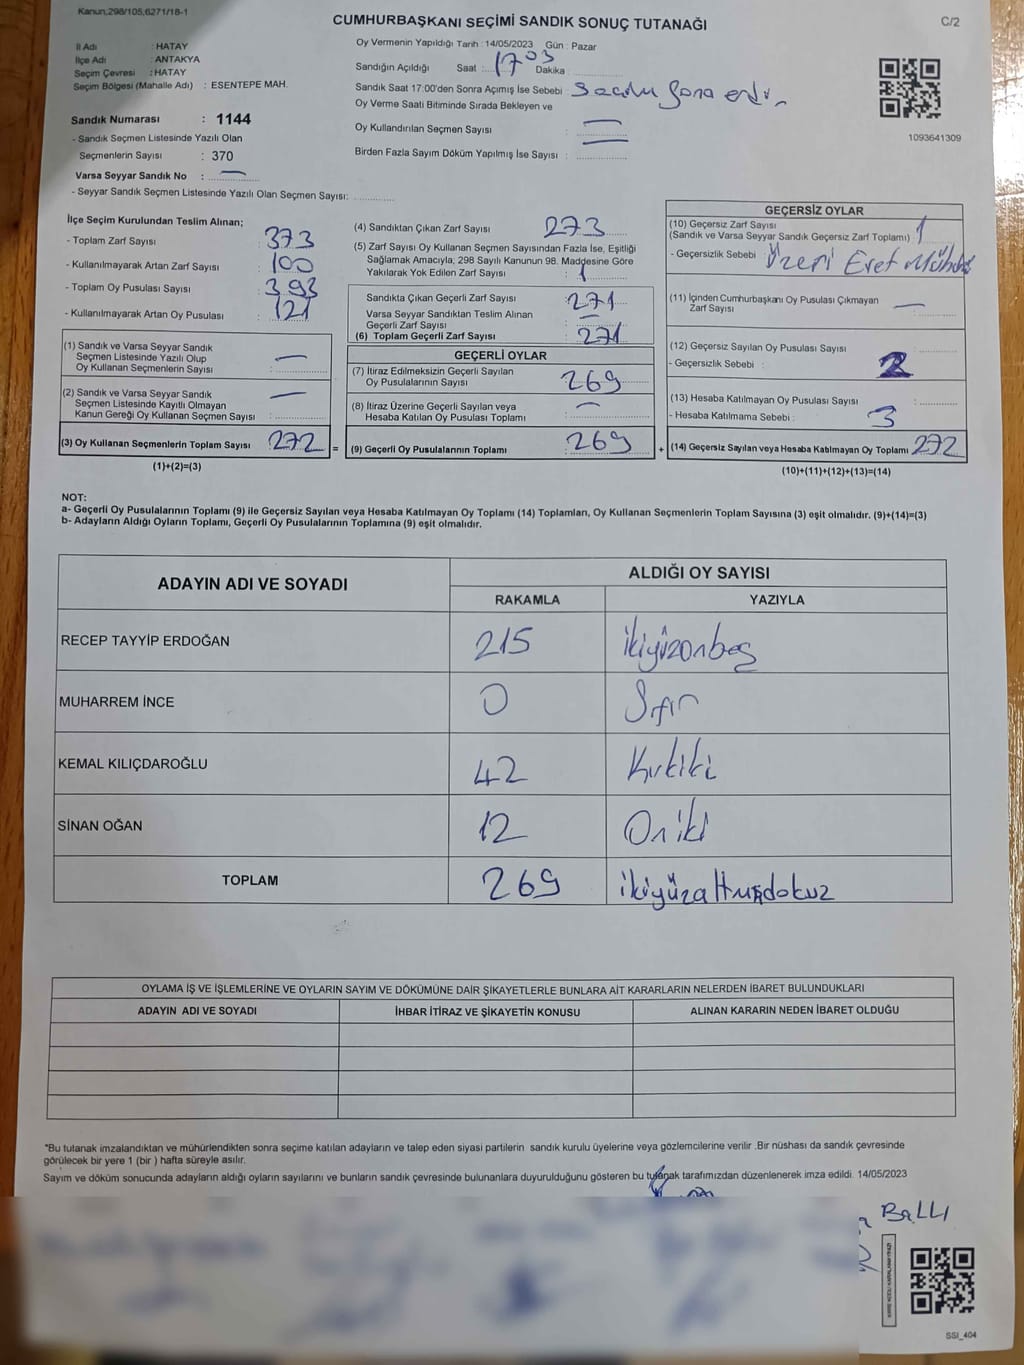 Kanun;298/105,6271/18-1
CUMHURBAŞKANI SEÇİMİ SANDIK SONUÇ TUTANAĞI
C/2
İl Adı : HATAY
İlçe Adı : ANTAKYA
Seçim Çevresi : HATAY
Seçim Bölgesi (Mahalle Adı) : ESENTEPE MAH.
Sandık Numarası : 1144
- Sandık Seçmen Listesinde Yazılı Olan
Seçmenlerin Sayısı : 370
Varsa Seyyar Sandık No : —
- Seyyar Sandık Seçmen Listesinde Yazılı Olan Seçmen Sayısı:
Oy Vermenin Yapıldığı Tarih : 14/05/2023 Gün : Pazar
Sandığın Açıldığı Saat : 17 Dakika 03
Sandık Saat 17:00'den Sonra Açımış İse Sebebi : Sona erdi
Oy Verme Saati Bitiminde Sırada Bekleyen ve
Oy Kullandırılan Seçmen Sayısı : —
Birden Fazla Sayım Döküm Yapılmış İse Sayısı : —
1093641309
İlçe Seçim Kurulundan Teslim Alınan;
- Toplam Zarf Sayısı : 373
- Kullanılmayarak Artan Zarf Sayısı : 100
- Toplam Oy Pusulası Sayısı : 393
- Kullanılmayarak Artan Oy Pusulası : 121
(1) Sandık ve Varsa Seyyar Sandık
Seçmen Listesinde Yazılı Olup
Oy Kullanan Seçmenlerin Sayısı : —
(2) Sandık ve Varsa Seyyar Sandık
Seçmen Listesinde Kayıtlı Olmayan
Kanun Gereği Oy Kullanan Seçmen Sayısı : —
(3) Oy Kullanan Seçmenlerin Toplam Sayısı 272 =
(1)+(2)=(3)
(4) Sandıktan Çıkan Zarf Sayısı 273
(5) Zarf Sayısı Oy Kullanan Seçmen Sayısından Fazla İse, Eşitliği
Sağlamak Amacıyla, 298 Sayılı Kanunun 98. Maddesine Göre
Yakılarak Yok Edilen Zarf Sayısı : 1
Sandıkta Çıkan Geçerli Zarf Sayısı : 271
Varsa Seyyar Sandıktan Teslim Alınan
Geçerli Zarf Sayısı : —
(6) Toplam Geçerli Zarf Sayısı : 271
GEÇERLİ OYLAR
(7) İtiraz Edilmeksizin Geçerli Sayılan
Oy Pusulalarının Sayısı : 269
(8) İtiraz Üzerine Geçerli Sayılan veya
Hesaba Katılan Oy Pusulası Toplamı : —
(9) Geçerli Oy Pusulalarının Toplamı : 269 +
GEÇERSİZ OYLAR
(10) Geçersiz Zarf Sayısı
(Sandık ve Varsa Seyyar Sandık Geçersiz Zarf Toplamı) : 1
- Geçersizlik Sebebi : Üzeri Evet
(11) İçinden Cumhurbaşkanı Oy Pusulası Çıkmayan
Zarf Sayısı : —
(12) Geçersiz Sayılan Oy Pusulası Sayısı :
- Geçersizlik Sebebi : 2
(13) Hesaba Katılmayan Oy Pusulası Sayısı :
- Hesaba Katılmama Sebebi : 3
(14) Geçersiz Sayılan veya Hesaba Katılmayan Oy Toplamı 272
(10)+(11)+(12)+(13)=(14)
NOT:
a- Geçerli Oy Pusulalarının Toplamı (9) ile Geçersiz Sayılan veya Hesaba Katılmayan Oy Toplamı (14) Toplamları, Oy Kullanan Seçmenlerin Toplam Sayısına (3) eşit olmalıdır. (9)+(14)=(3)
b- Adayların Aldığı Oyların Toplamı, Geçerli Oy Pusulalarının Toplamına (9) eşit olmalıdır.
ADAYIN ADI VE SOYADI
ALDIĞI OY SAYISI
RAKAMLA YAZIYLA
RECEP TAYYİP ERDOĞAN 215 ikiyüzonbeş
MUHARREM İNCE 0 Sıfır
KEMAL KILIÇDAROĞLU 42 Kırkiki
SİNAN OĞAN 12 Oniki
TOPLAM 269 ikiyüzaltmışdokuz
OYLAMA İŞ VE İŞLEMLERİNE VE OYLARIN SAYIM VE DÖKÜMÜNE DAİR ŞİKAYETLERLE BUNLARA AİT KARARLARIN NELERDEN İBARET BULUNDUKLARI
ADAYIN ADI VE SOYADI İHBAR İTİRAZ VE ŞİKAYETİN KONUSU ALINAN KARARIN NEDEN İBARET OLDUĞU
*Bu tutanak imzalandıktan ve mühürlendikten sonra seçime katılan adayların ve talep eden siyasi partilerin sandık kurulu üyelerine veya gözlemcilerine verilir .Bir nüshası da sandık çevresinde
görülecek bir yere 1 (bir ) hafta süreyle asılır.
Sayım ve döküm sonucunda adayların aldığı oyların sayılarını ve bunların sandık çevresinde bulunanlara duyurulduğunu gösteren bu tutanak tarafımızdan düzenlenerek imza edildi. 14/05/2023
BALLI
SSI_404